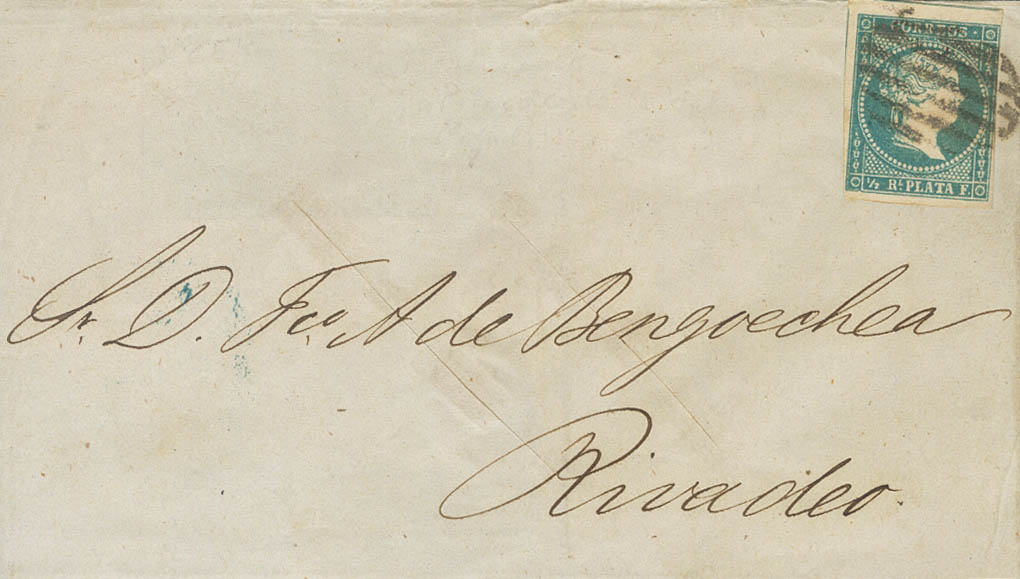 CORREOS
½ Rˡ PLATA F.
Sr. D. Fco. A de Bengoechea
Rivadeo.